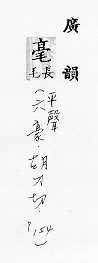 廣韻
毫
長毛
(平聲
六豪.胡刀切.
P154)